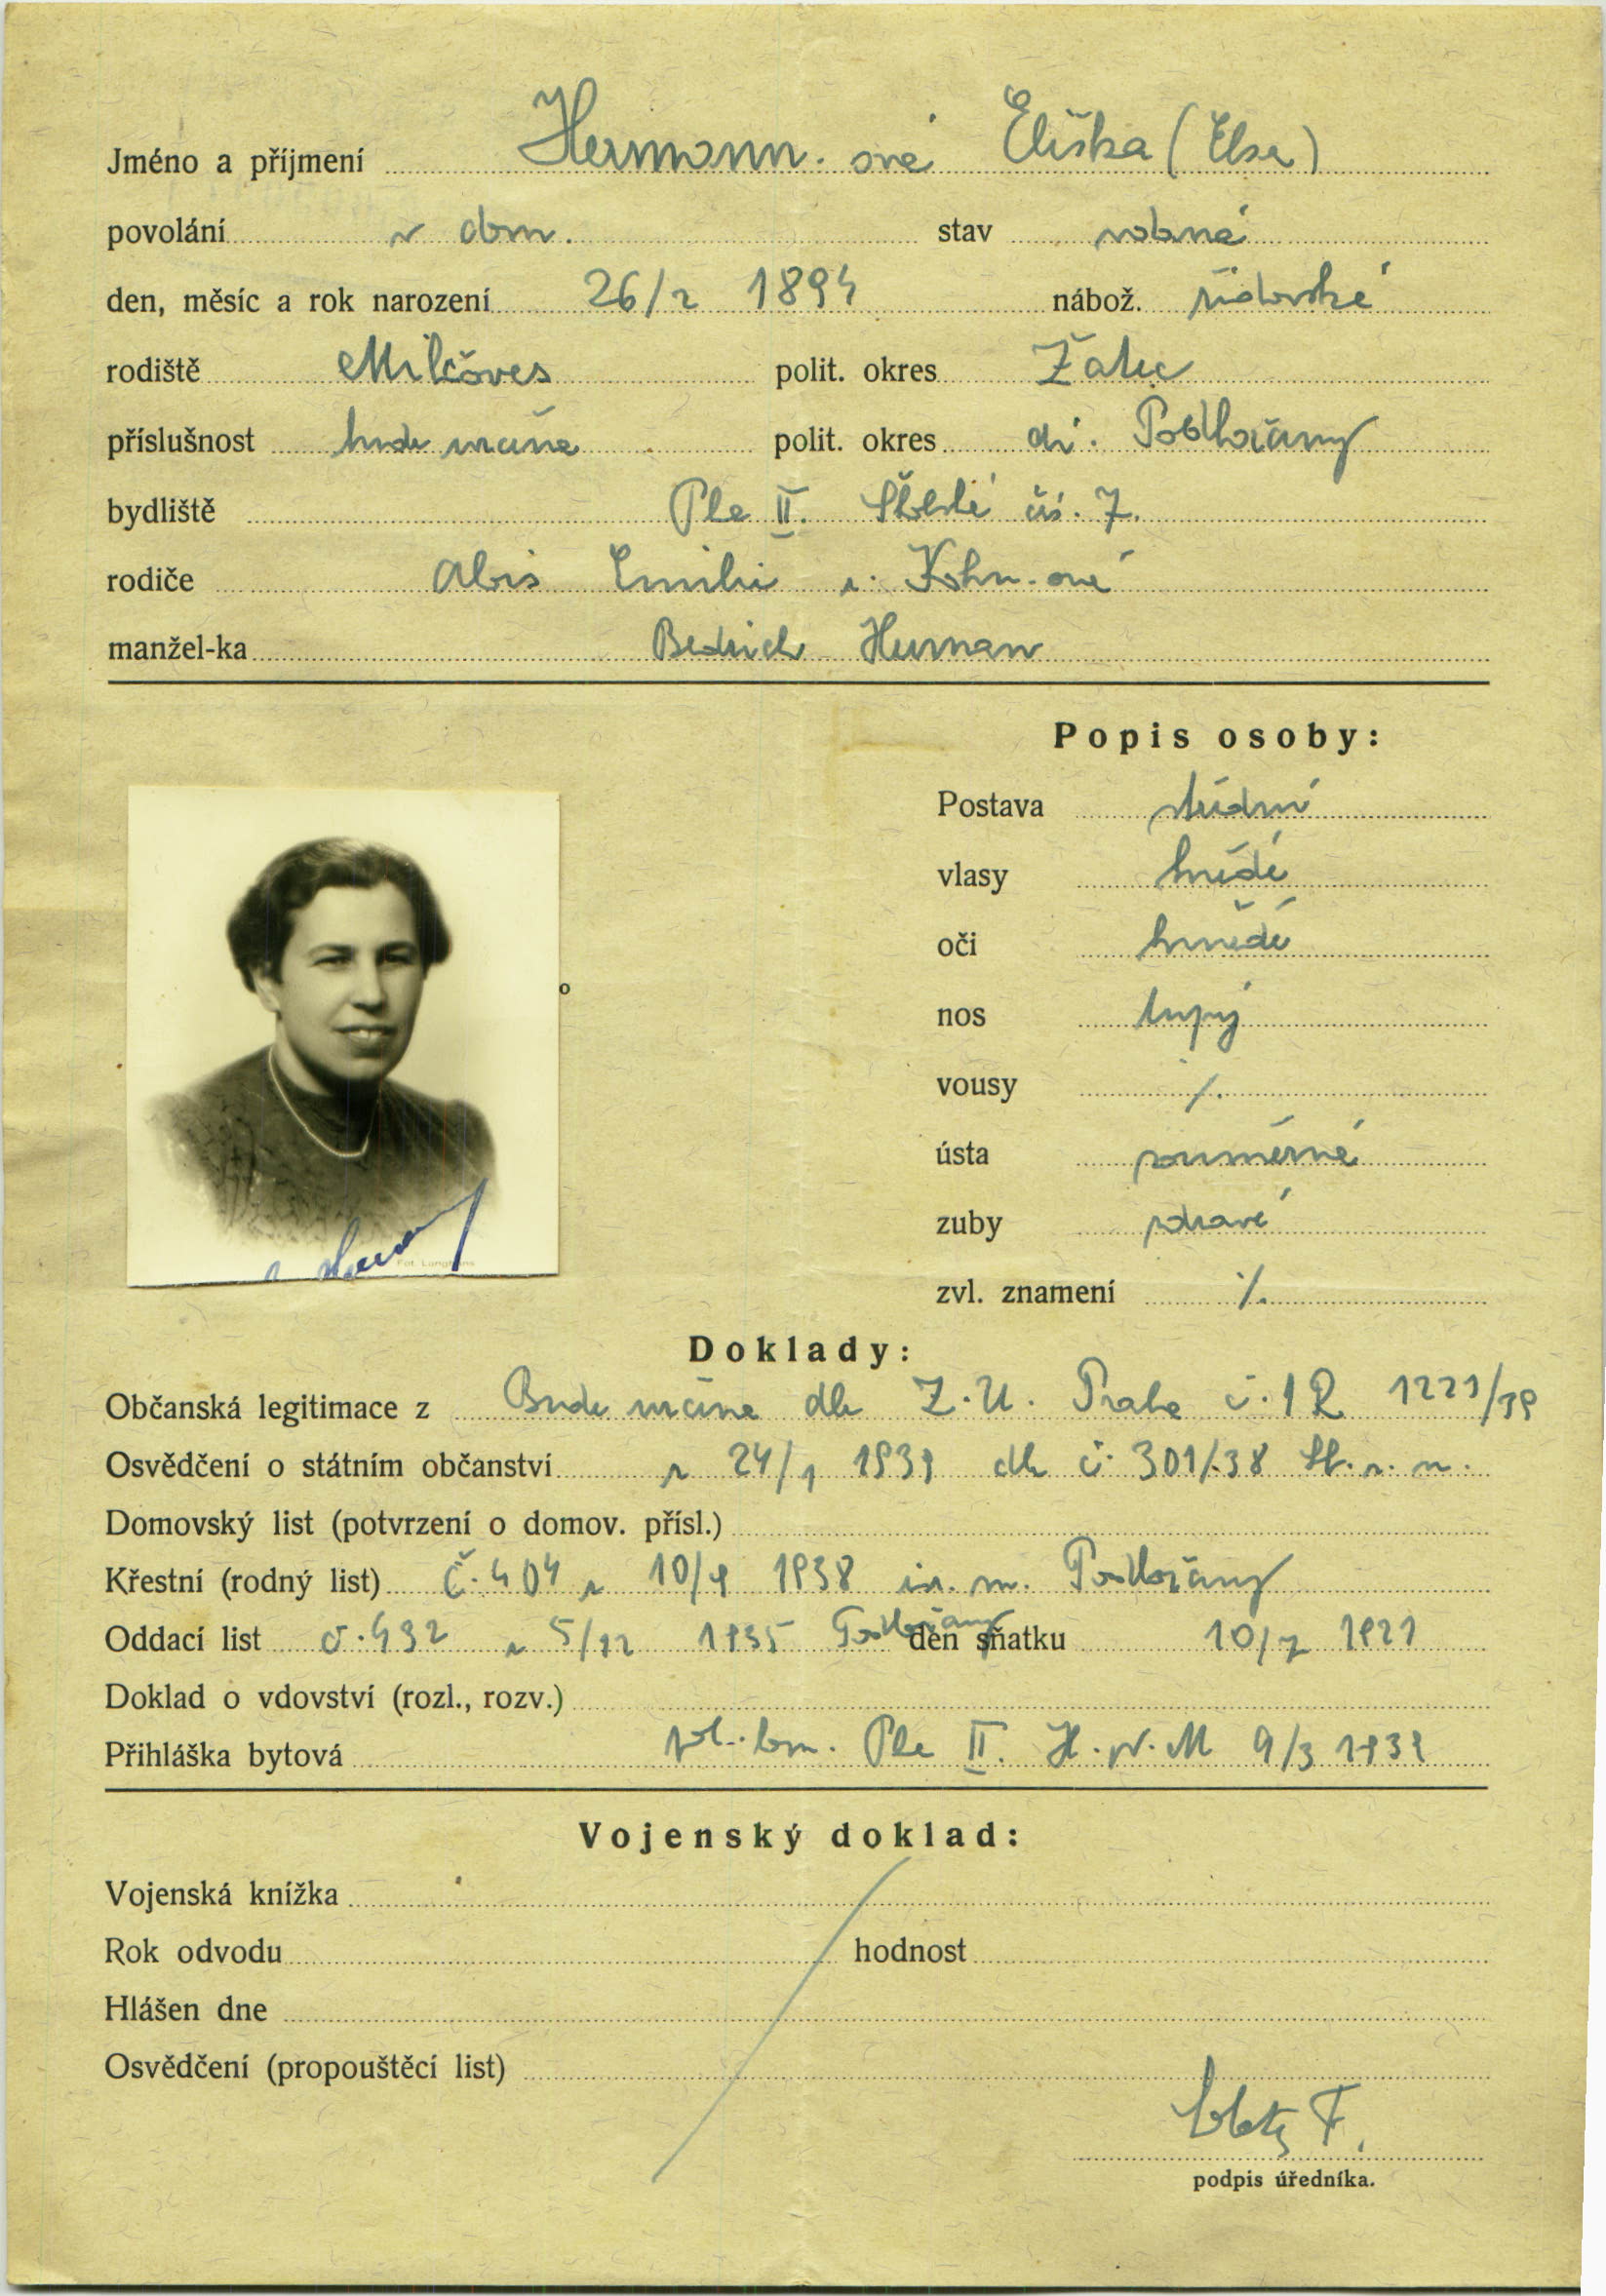 Jméno a příjmení Hermann. ová Eliška (Elsa)
povolání v dom. stav vdaná
den, měsíc a rok narození 26/2 1894 nábož. židovské
rodiště Milčoves polit. okres Žatec
příslušnost bude určena polit. okres dř. Podbořany
bydliště Pha II. čís. 7.
rodiče Alois Emilie r. Kohn. ové
manžel-ka Bedřich Herman
Popis osoby:
Postava střední
vlasy hnědé
oči hnědé
nos tupý
vousy ·/.
ústa souměrné
zuby zdravé
zvl. znamení ·/.
Fot. Langhans
Doklady:
Občanská legitimace z Bude určena dle Z. U. Praha č. 1 R 1221/39
Osvědčení o státním občanství z 24/1 1939 dle č. 301/38
Domovský list (potvrzení o domov. přísl.)
Křestní (rodný list) Č. 404 z 10/9 1938 iz. m. Podbořany
Oddací list č. 492 z 5/12 1935 Podbořany den sňatku 10/7 1921
Doklad o vdovství (rozl., rozv.)
Přihláška bytová pol. kom. Pha II. 9/3 1939
Vojenský doklad:
Vojenská knížka
Rok odvodu hodnost
Hlášen dne
Osvědčení (propouštěcí list)
podpis úředníka.